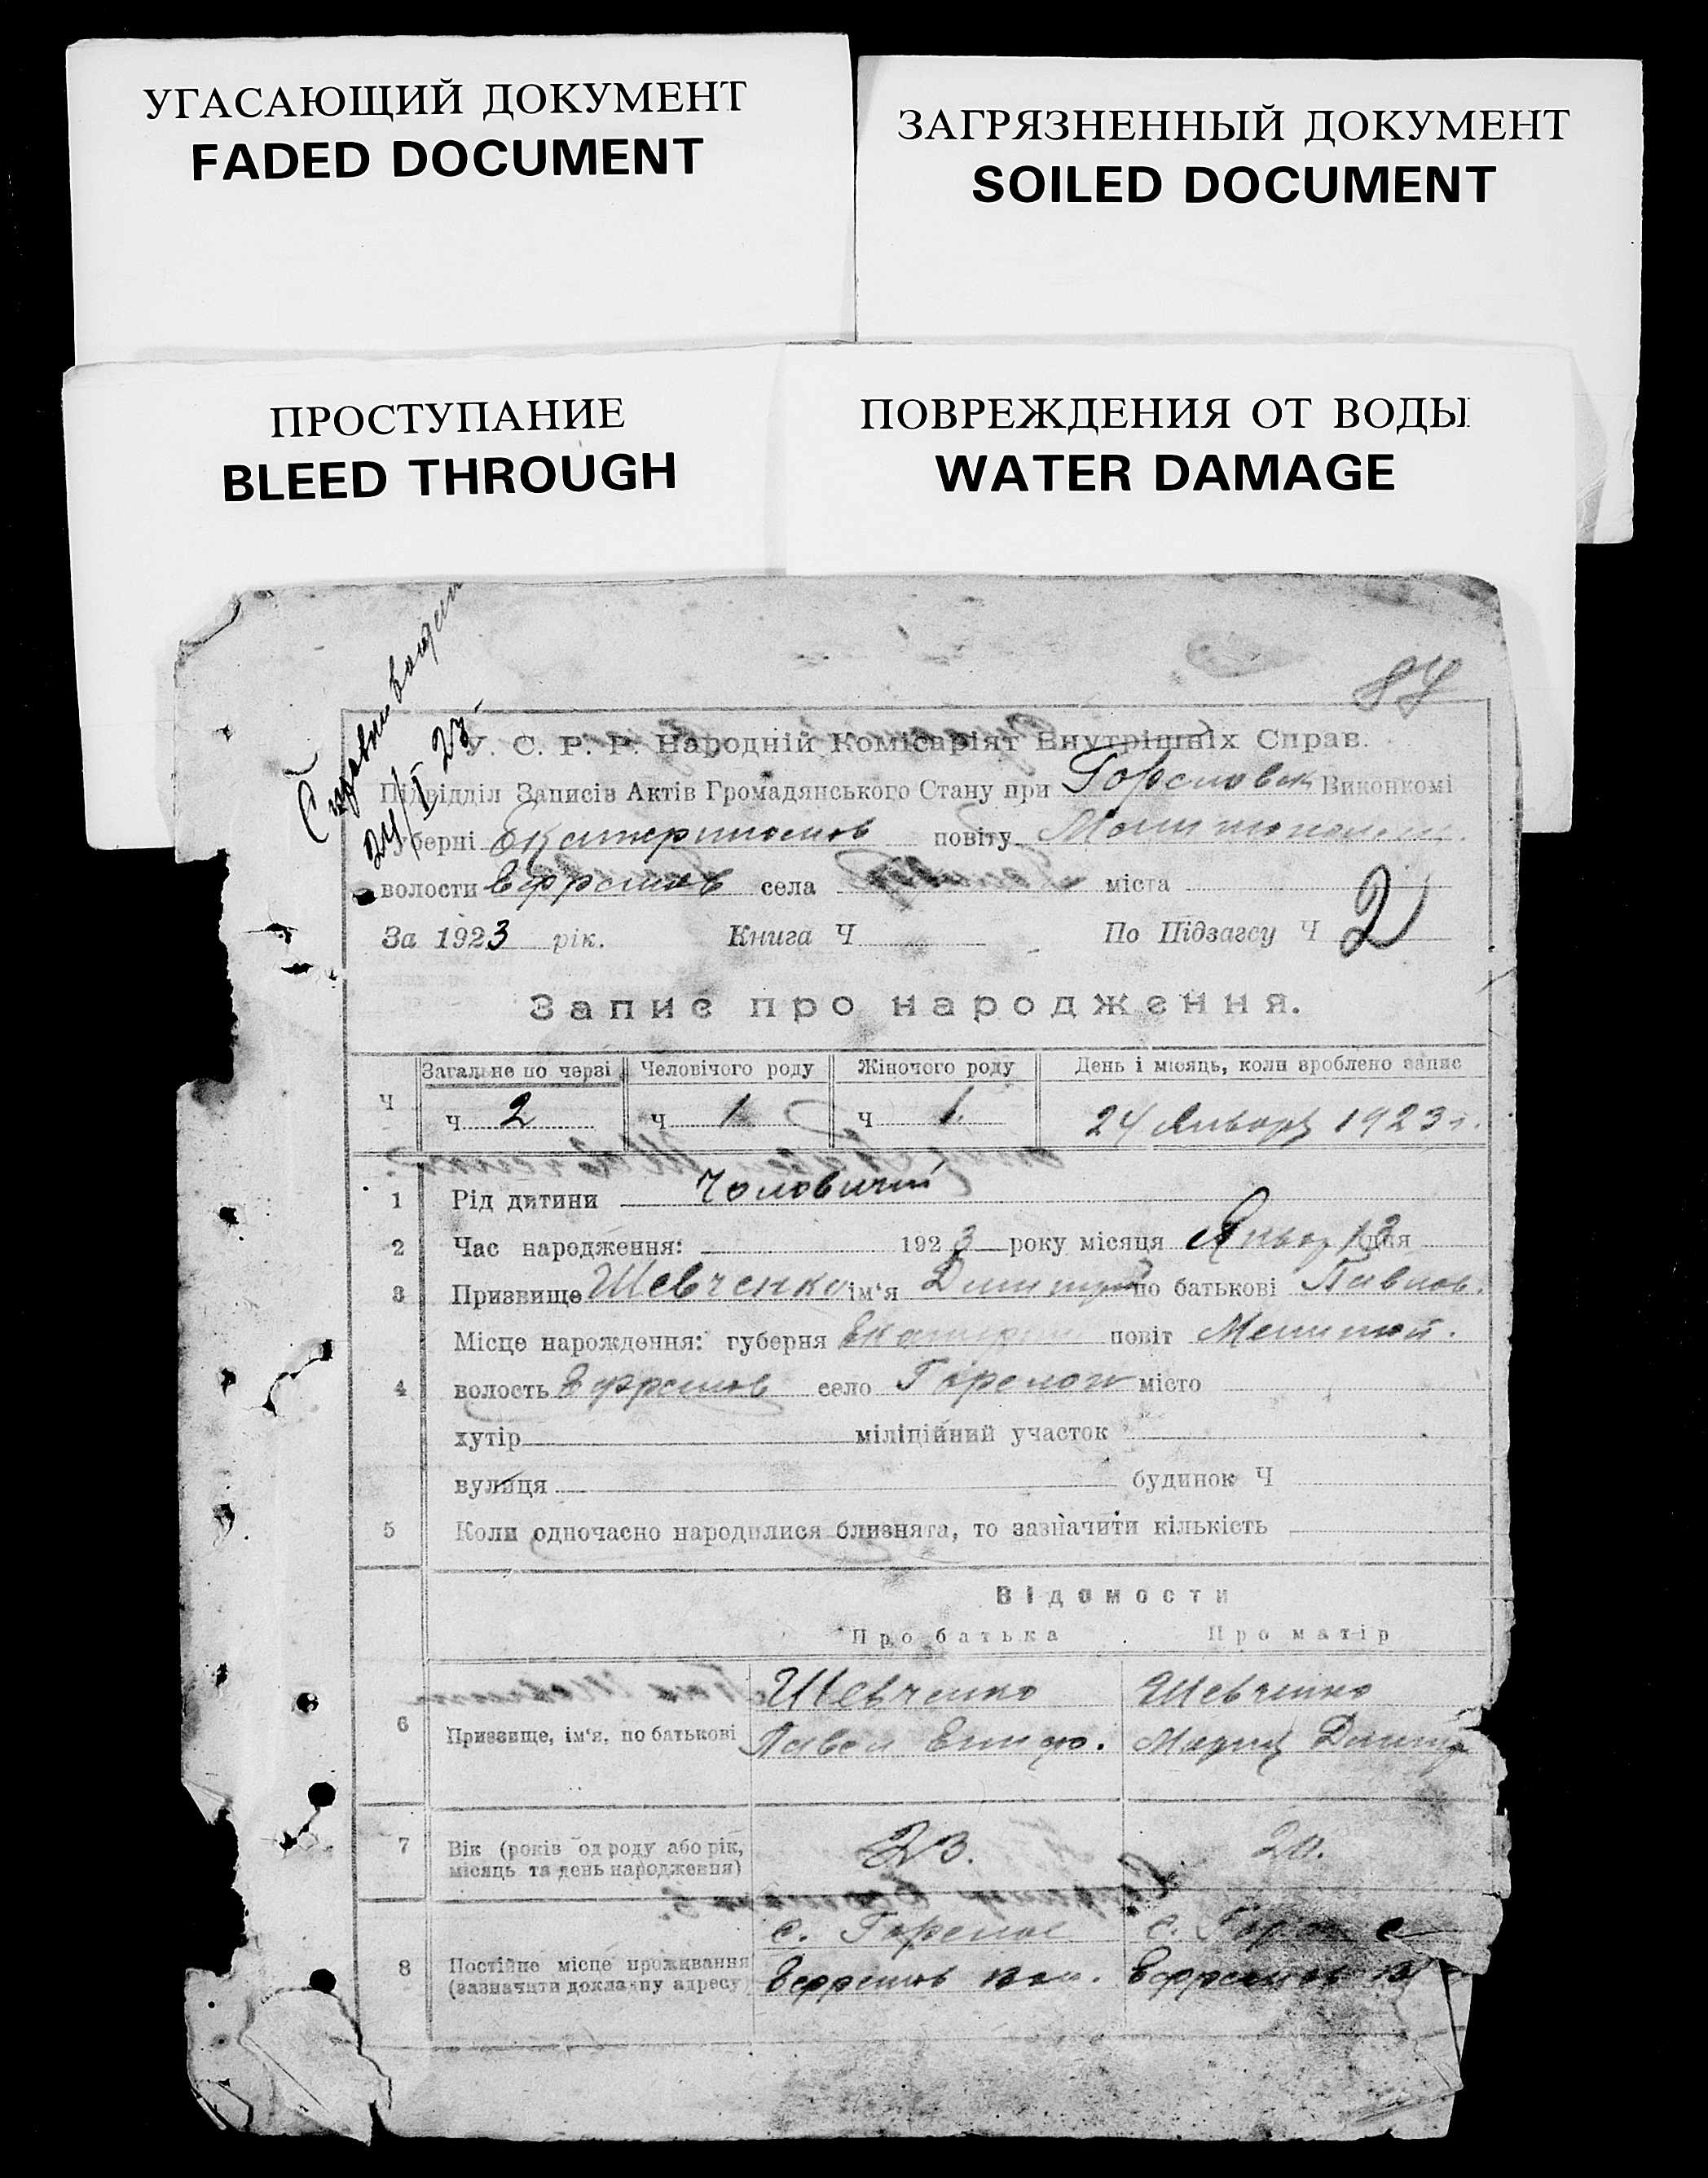 УГАСАЮЩИЙ ДОКУМЕНТ
FADED DOCUMENT
ЗАГРЯЗНЕННЫЙ ДОКУМЕНТ
SOILED DOCUMENT
ПРОСТУПАНИЕ
BLEED THROUGH
ПОВРЕЖДЕНИЯ ОТ ВОДЫ
WATER DAMAGE
24/I 23
У. С. Р. Р. Народній Комісаріят Внутрішніх Справ.
Підвідділ Записів Актів Громадянського Стану при Гореловск Виконкомі
губерні Екатеринослов повіту
волости Ефремов села міста
За 1923 рік. Книга Ч По Підзагсу Ч 2
Запис про народження.
Загальне по черзі Человічого роду Жіночого роду День і місяць, коли зроблено запис
Ч Ч 2 Ч 1 Ч 1. 24 Января 1923 г.
1 Рід дитини Чоловичий
2 Час народження: 1923 року місяця Январ 13 дня
3 Призвище Шевченко ім'я Димитрий по батькові Павлов.
Місце нарождення: губерня Екатерин повіт Мелитой.
4 волость Ефремов село Горелое місто
хутір міліційний участок
вулиця будинок Ч
5 Коли одночасно народилися близнята, то зазначити кількість
Відомости
Про батька Про матір
Шевченко Шевченко
6 Призвище, ім'я, по батькові Павел Епифо. Мария Димитр
7 Вік (років од роду або рік, місяць та день народження) 23. 20.
с. Горелое с.
8 Постійне місце проживання (зазначити докладну адресу) Ефремов вол. Ефремов